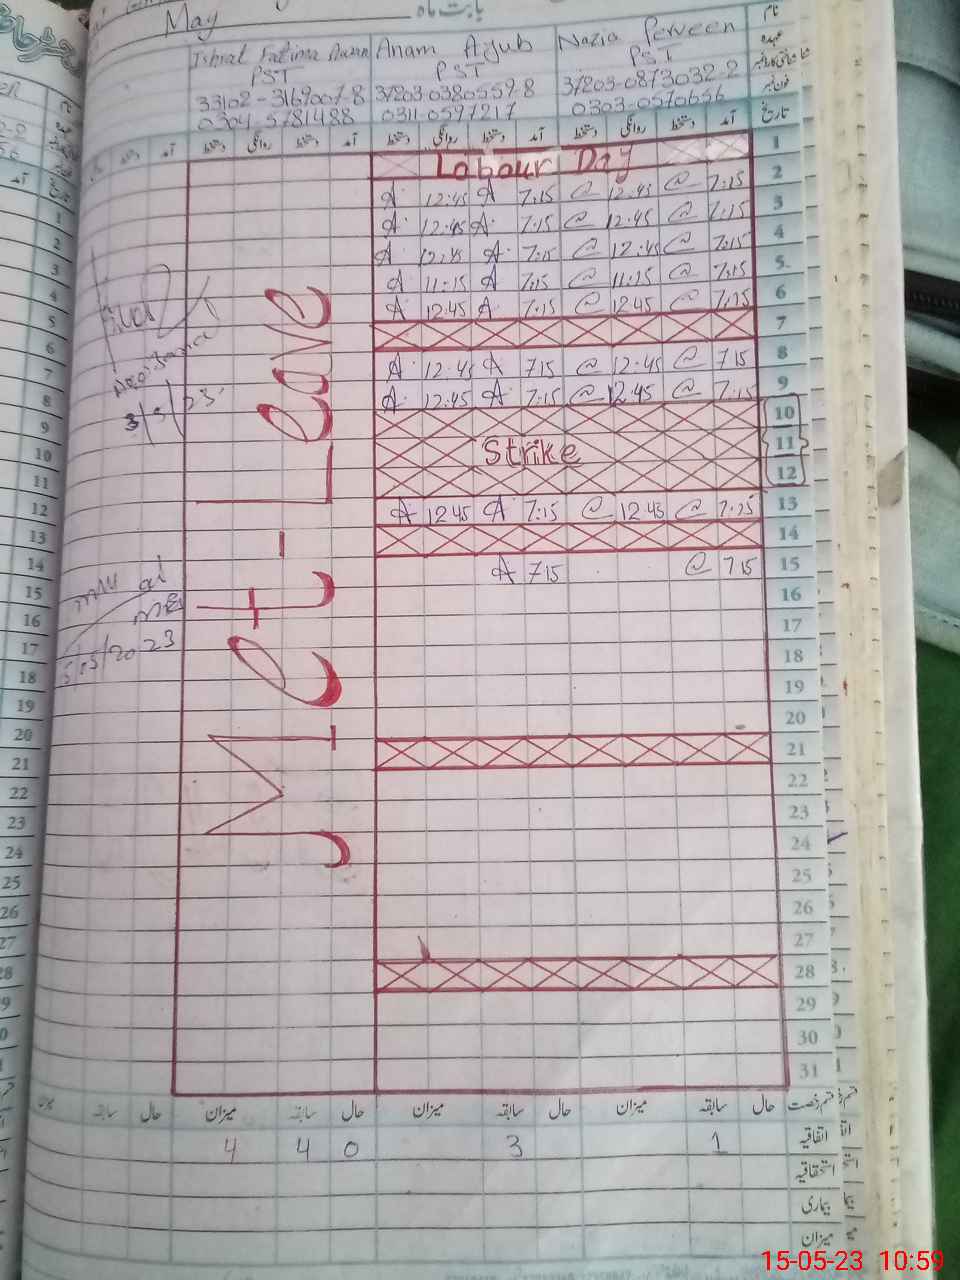 May
بابت ماہ
نام
Nazia Perveen
Anam Ayub
Ishrat Fatima
عہدہ
PST
PST
PST
37203-0873032-2
37203-0380559-8
33102-3169007-8
فون نمبر
0303-0570656
0311-0597217
0304-5781488
تاریخ
آمد دستخط روانگی دستخط آمد دستخط روانگی دستخط آمد دستخط روانگی دستخط
1 Labour Day
2 7:15 @ 12:45 @ 7:15 A 12:45 A
3 7:15 @ 12:45 @ 7:15 A 12:45 A
4 7:15 @ 12:45 @ 7:15 A 12:45 A
5 7:15 @ 11:15 @ 7:15 A 11:15 A
6 7:15 @ 12:45 @ 7:15 A 12:45 A
7
8 7:15 @ 12:45 @ 7:15 A 12:45 A
9 7:15 @ 12:45 @ 7:15 A 12:45 A
10
11 Strike
12
13 7:15 @ 12:45 @ 7:15 A 12:45 A
14
15 7:15 @ 7:15 A
16
17
18
19
20
21
22
23
24
25
26
27
28
29
30
31
Leave
قسم رخصت حال سابقہ میزان حال سابقہ میزان حال سابقہ میزان حال سابقہ
اتفاقیہ 1 3 0 4 4
استحقاقیہ
بیماری
میزان
15-05-23 10:59